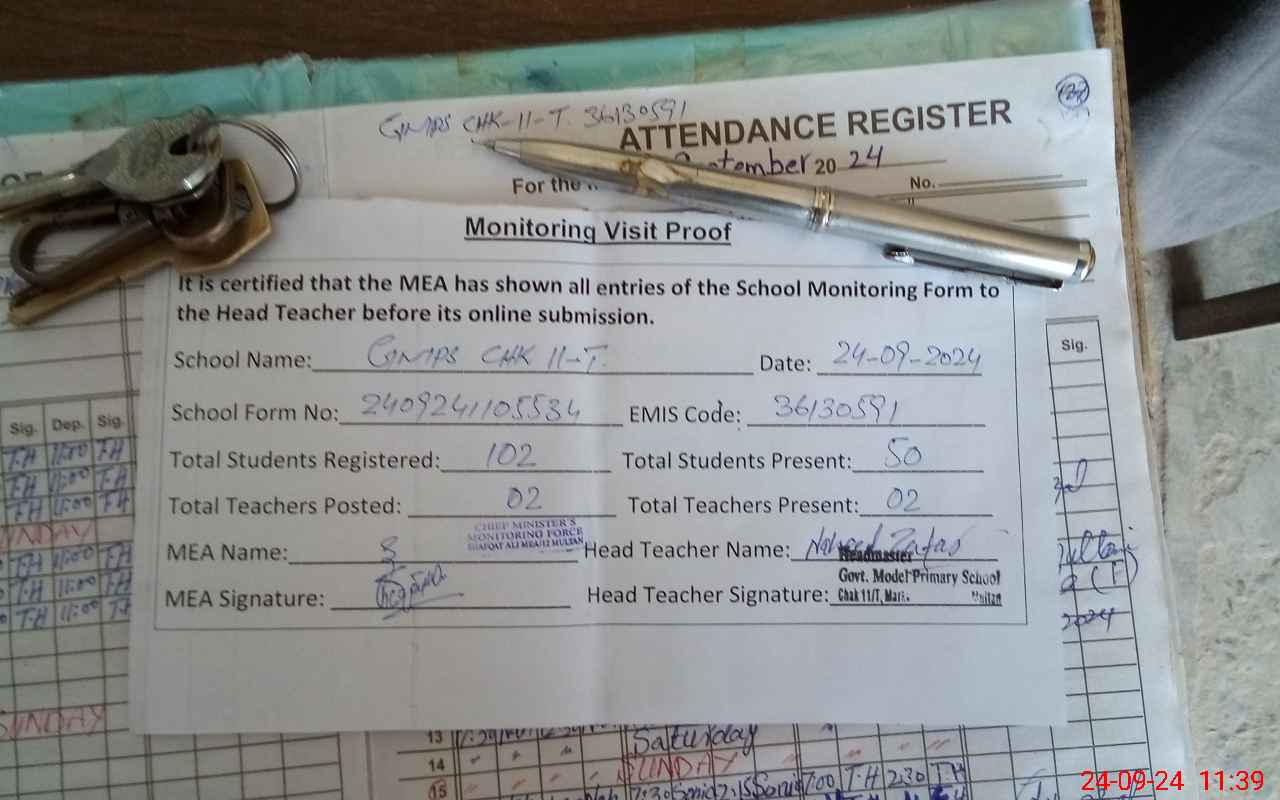 GMPS CHK-11-T. 36130591
ATTENDANCE REGISTER
For the
September 2024
No.
Monitoring Visit Proof
It is certified that the MEA has shown all entries of the School Monitoring Form to
the Head Teacher before its online submission.
School Name: GMPS CHK 11-T. Date: 24-09-2024
School Form No: 2409241105534 EMIS Code: 36130591
Total Students Registered: 102 Total Students Present: 50
Total Teachers Posted: 02 Total Teachers Present: 02
CHIEF MINISTER'S
MONITORING FORCE
SHAFQAT ALI MEA#12 MULTAN
MEA Name: Head Teacher Name:
Headmaster
Govt. Model Primary School
Chak 11/T,
Multan
MEA Signature: Head Teacher Signature:
Sig. Dep. Sig.
T.H 11:00 T.H
T.H 11:00 T.H
T.H 11:00 T.H
SUNDAY
T.H 11:00 T.H
T.H 11:00 T.H
T.H 11:00 T.H
SUNDAY
Sig.
2024
13 Saturday
14 SUNDAY
15 7:00 T.H 2:30 T.H
24-09-24 11:39